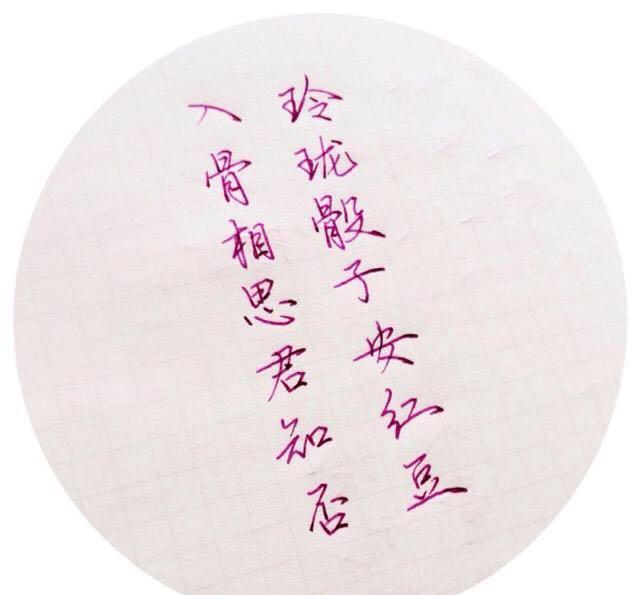 玲珑骰子安红豆
入骨相思君知否